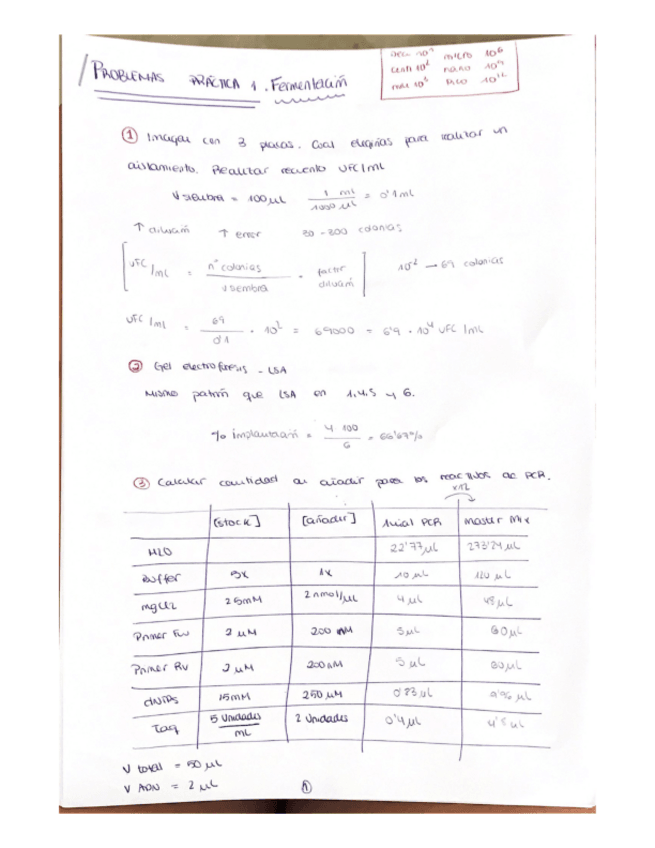 PROBLEMAS PRÁCTICA 1. Fermentación
micro 10⁶
centi 10² nano 10⁹
pico 10¹²
① Imagen con 3 placas. Cual elegirías para realizar un
aislamiento. Realizar recuento UFC/mL
V siembra = 100 µL 1 mL / 1000 µL = 0'1 mL
↑ dilución ↑ error 30 - 300 colonias
UFC/mL = nº colonias / V siembra · factor dilución 10² → 69 colonias
UFC/mL = 69 / 0'1 · 10² = 69000 = 6'9 · 10⁴ UFC/mL
② Gel electroforesis - LSA
Mismo patrón que LSA en 1,4,5 y 6.
% implantación = 4 · 100 / 6 = 66'67%
③ Calcular cantidad a añadir para los reactivos de PCR.
x12
[stock] [añadir] 1 vial PCR Master Mix
H2O 22'77 µL 273'24 µL
Buffer 5x 1x 10 µL 120 µL
MgCl2 25mM 2 nmol/µL 4 µL 48 µL
Primer Fw 2 µM 200 nM 5 µL 60 µL
Primer RV 2 µM 200 nM 5 µL 60 µL
dNTPs 15mM 250 µM 0'83 µL 9'96 µL
Taq 5 Unidades / mL 2 Unidades 0'4 µL 4'8 µL
V total = 50 µL
V ADN = 2 µL
①